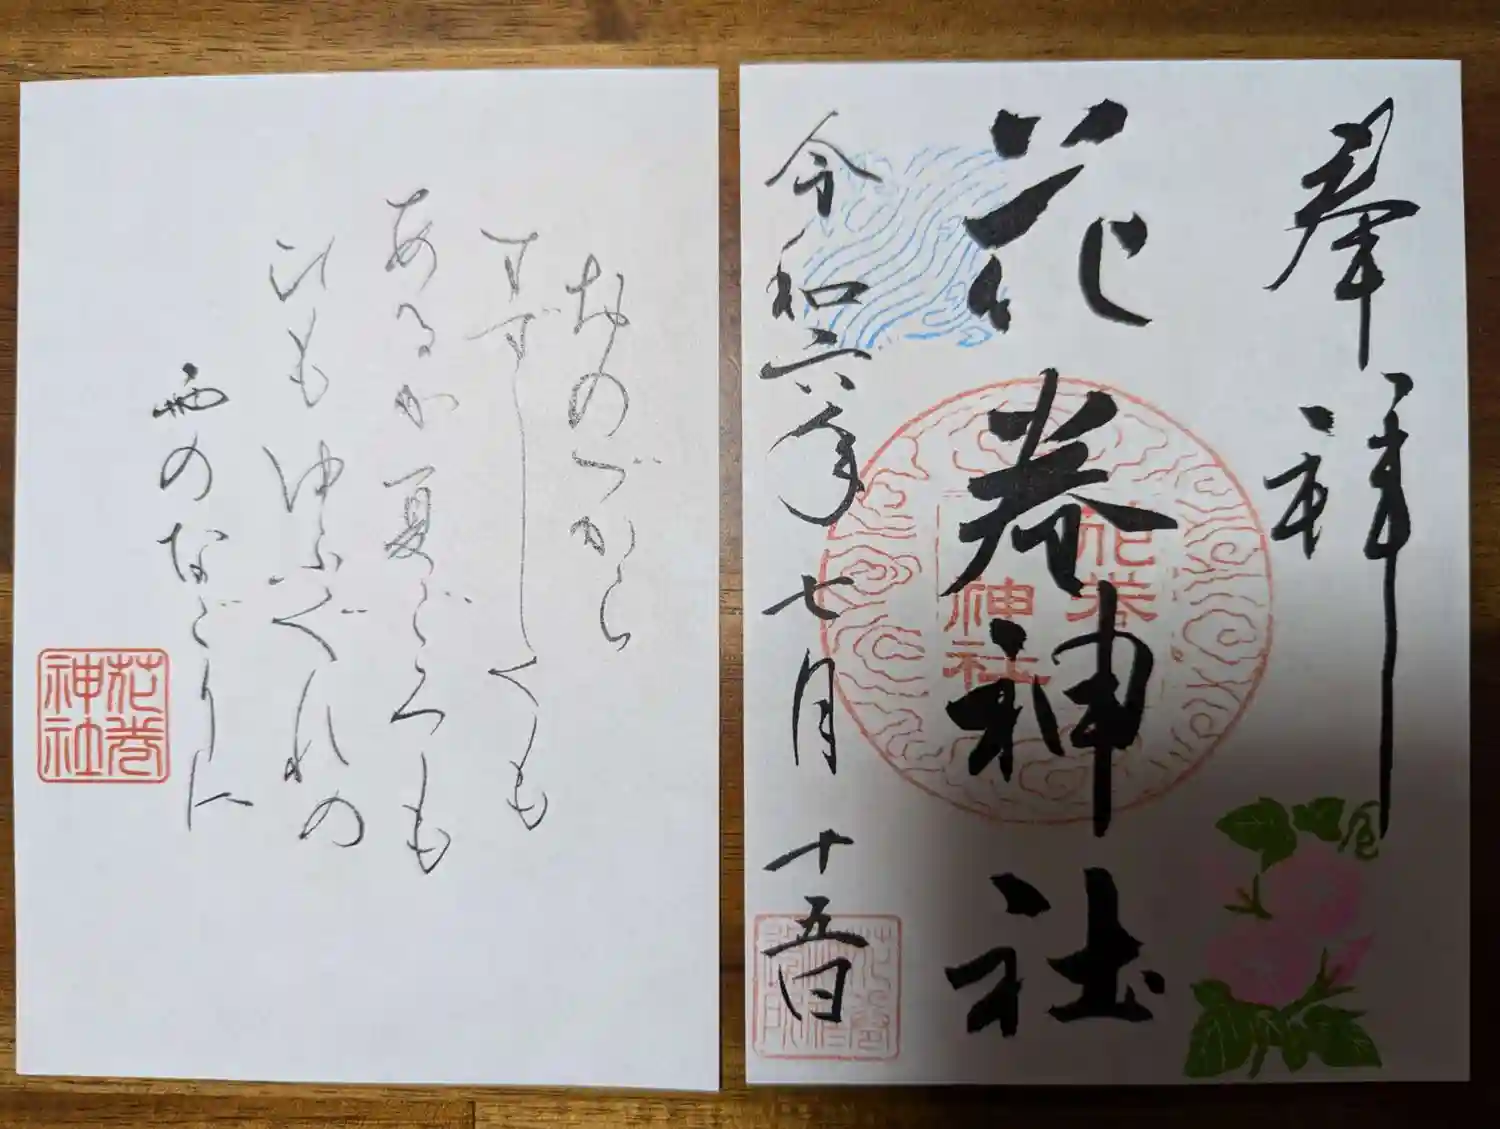 奉拝
花巻神社
花巻
神社
令和六年七月十五日
おのづから
すずしくも
あるか夏ごろも
ひもゆふぐれの
雨のなごりに
花巻
神社